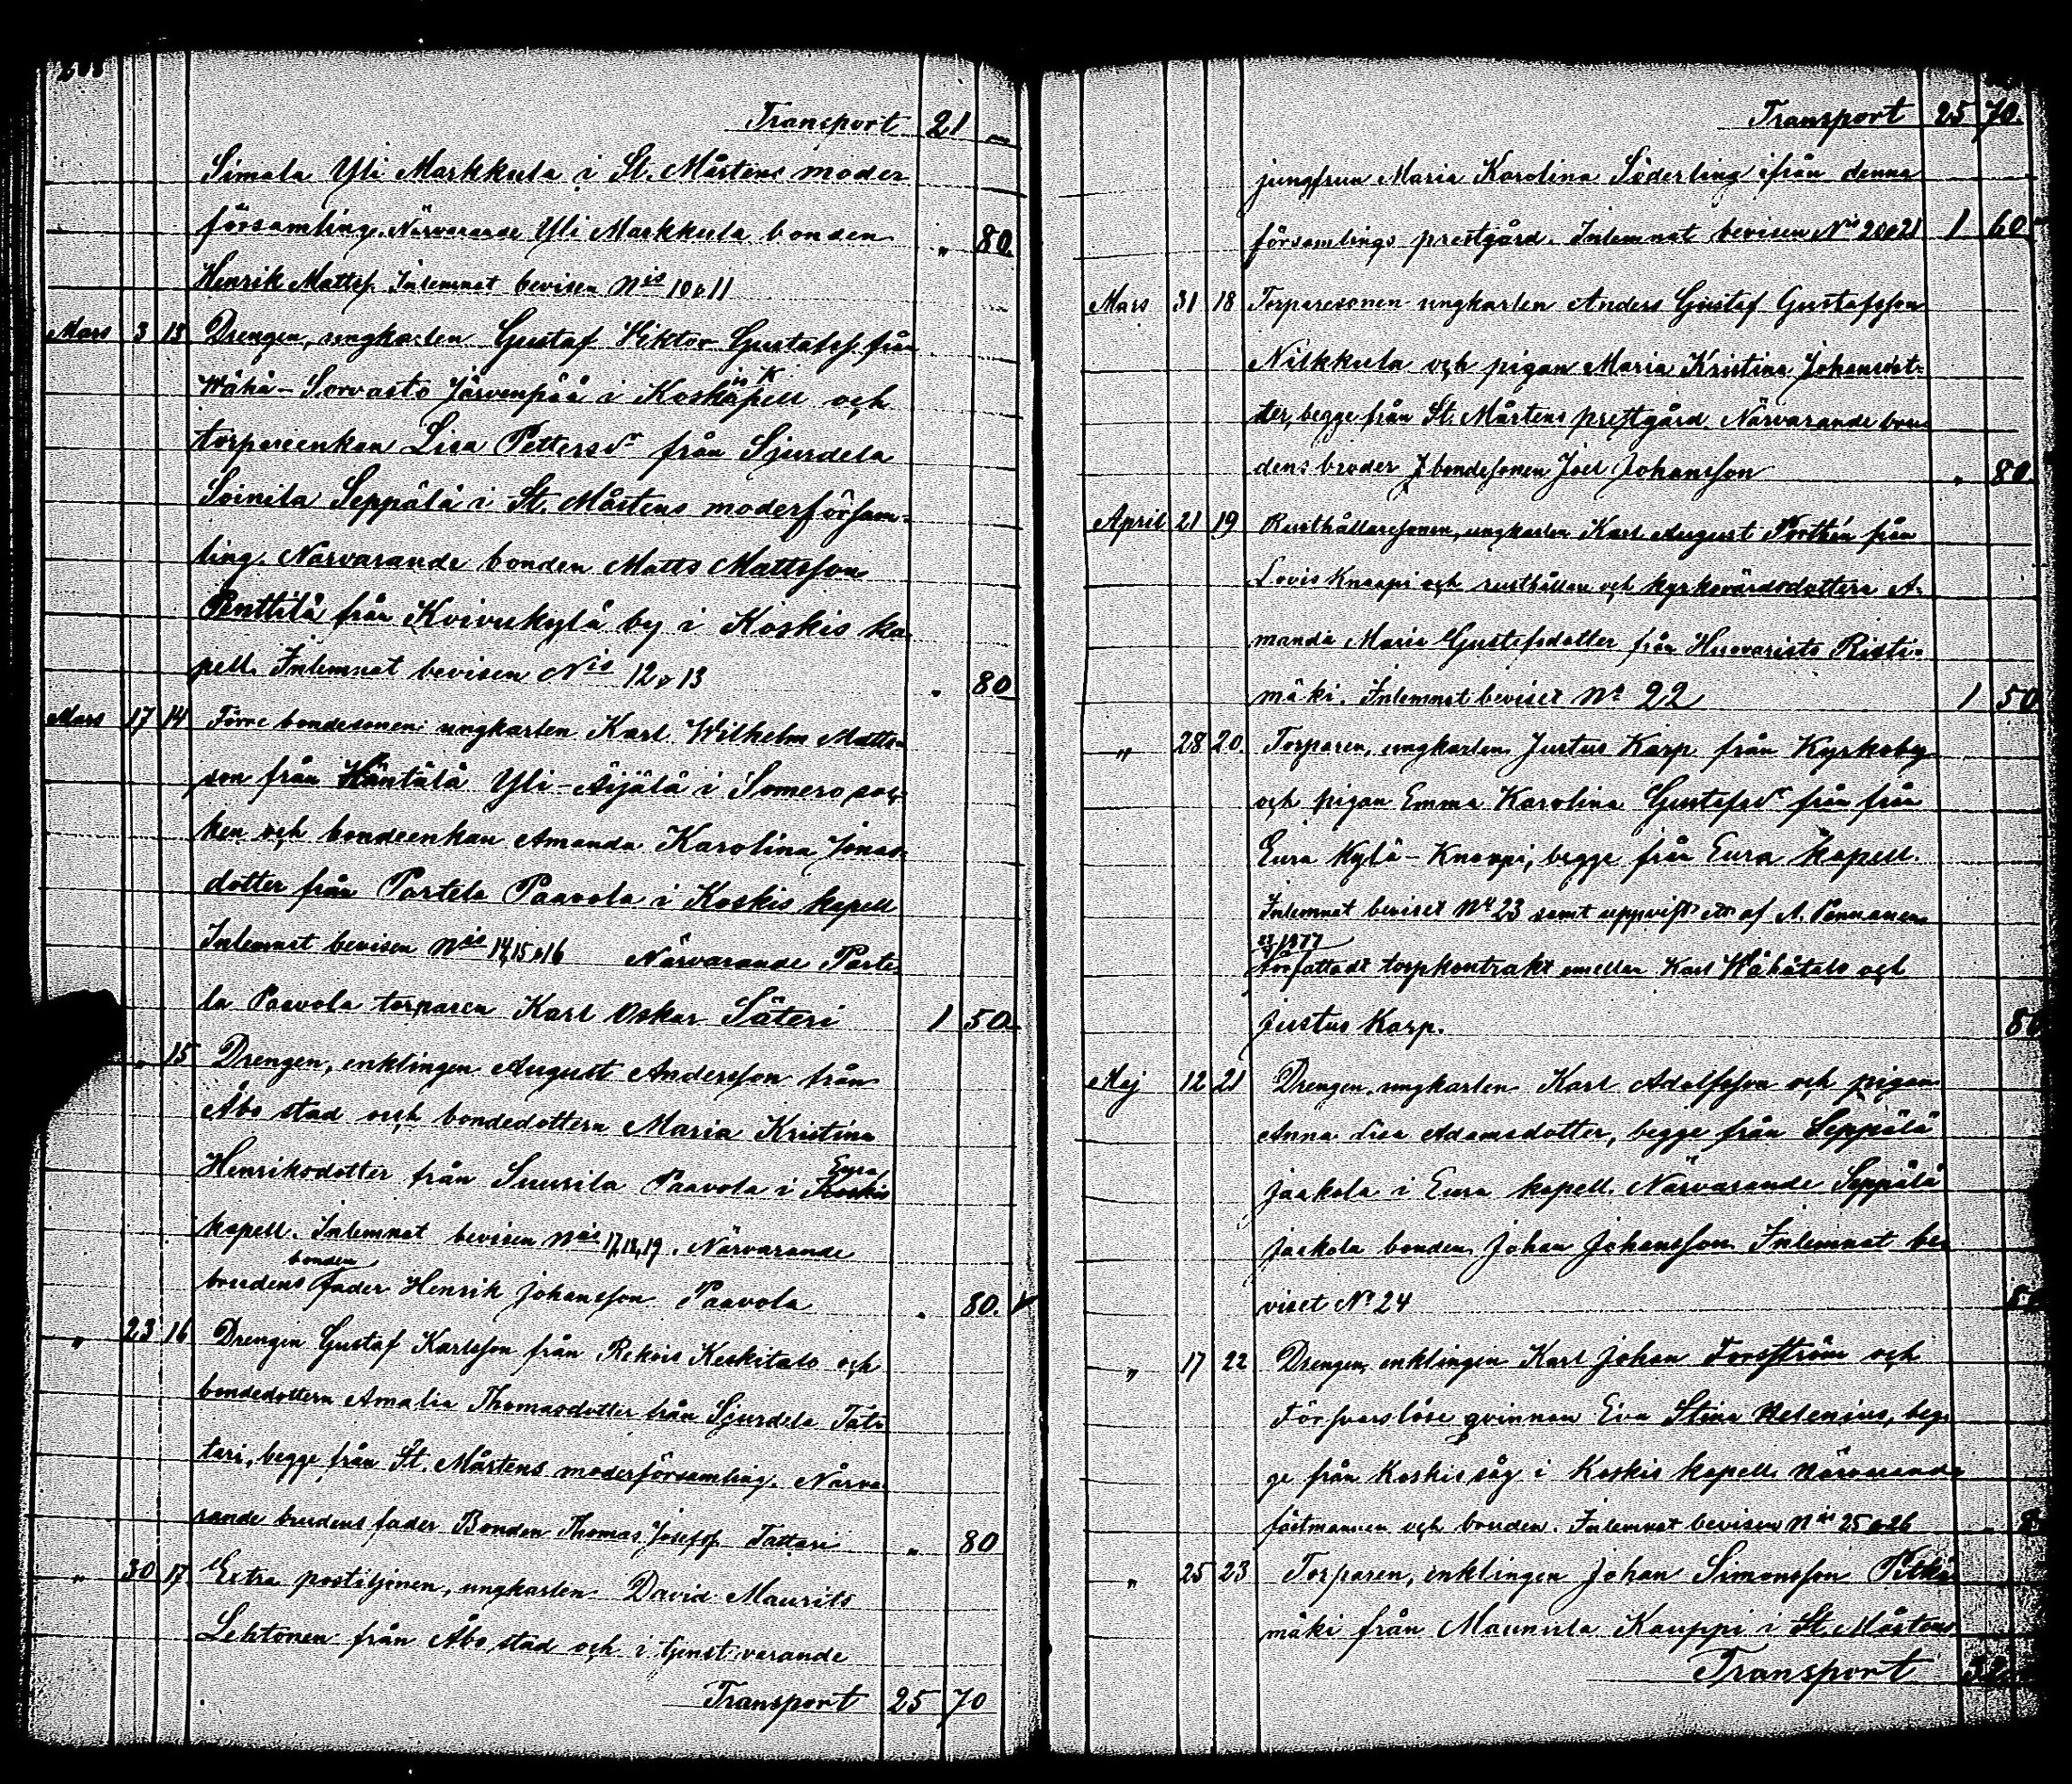 Transport 21 "
Simala Yli Markkula i St. Mårtens moder
församling. Närvarande Yli Markkula bonden " 80.
Henrik Mattsf. Inlemnat bevisen Nis 10 o 11
Mars 3 13 Drengen, ungkarlen Gustaf Viktor Gustafsf. från
Wähä-Sorvasto Järvenpää i Koskis Kapell och
torpareenkan Lisa Pettersdr från Sjurdela
Soinila Seppälä i St. Mårtens moderförsam-
ling. Närvarande bonden Matts Mattsson
Penttilä från Koivukylä by i Koskis ka-
pell. Inlemnat bevisen Nis 12 o 13 " 80
Mars 17 14 Förre bondesonen ungkarlen Karl Wilhelm Matts-
son från Häntälä Yli-Äijälä i Somero soc-
ken och bondeenkan Amanda Karolina Jonas-
dotter från Partela Paavola i Koskis kapell
Inlemnat bevisen Nis 14, 15 o 16 Närvarande Parte-
la Paavola torparen Karl Oskar Säteri 1 50.
" 15 Drengen, enklingen August Andersson från
Åbo stad och bondedottern Maria Kristina
Henriksdotter från Suurila Paavola i Koskis Eura
kapell. Inlemnat bevisen Nis 17, 18, 19. Närvarande
brudens bonden fader Henrik Johansson Paavola " 80.
" 23 16 Drengen Gustaf Karlsson från Rekois Keskitalo och
bondedottern Amalia Thomasdotter från Sjurdela Tat-
tari, begge från St. Mårtens moderförsamling. Närva-
rande brudens fader Bonden Thomas Josefsf. Tattari " 80
" 30 17 Extra postiljonen, ungkarlen David Maurits
Lehtonen från Åbo stad och i tjenst varande
Transport 25 70
Transport 25 70.
jungfrun Maria Karolina Söderling ifrån denna
församlings prestgård. Inlemnat bevisen Nis 20 o 21 1 60
Mars 31 18 Torparesonen ungkarlen Anders Gustaf Gustafsson
Nikkula och pigan Maria Kristina Johansdot-
ter, begge från St. Mårtens prestgård. Närvarande bru-
dens broder bondesonen Joel Johansson " 80.
April 21 19 Rusthållaresonen, ungkarlen Karl August Porthén från
Lovis Knaapi och rusthållare och kyrkovärdsdottern A-
manda Maria Gustafsdotter från Huovaristo Risti-
mäki. Inlemnat beviset No 22 1 50
" 28 20. Torparen, ungkarlen Justus Karp från Kyrkoby
och pigan Emma Karolina Gustafsdr från från
Eura Kylä-Knaapi, begge från Eura Kapell.
Inlemnat beviset No 23 samt uppvist ett af A. Pennanen
1877
författadt torpkontrakt emellan Karl Wähätalo och
Justus Karp. 80
Maj 12 21 Drengen, ungkarlen Karl Adolfsson och pigan
Anna Lisa Adamsdotter, begge från Seppälä
Jaakola i Eura kapell. Närvarande Seppälä
Jaakola bonden Johan Johansson Inlemnat be-
viset No 24
" 17 22 Drengen, enklingen Karl Johan Forsström och
Försvarslösa qvinnan Eva Stina Helenius, beg-
ge från Koskis såg i Koskis kapell. Närvarande
fästmannen och bruden. Inlemnat bevisen Nis 25 o 26
" 25 23 Torparen, enklingen Johan Simonsson Pitkä-
mäki från Maunula Kauppi i St. Mårtens
Transport